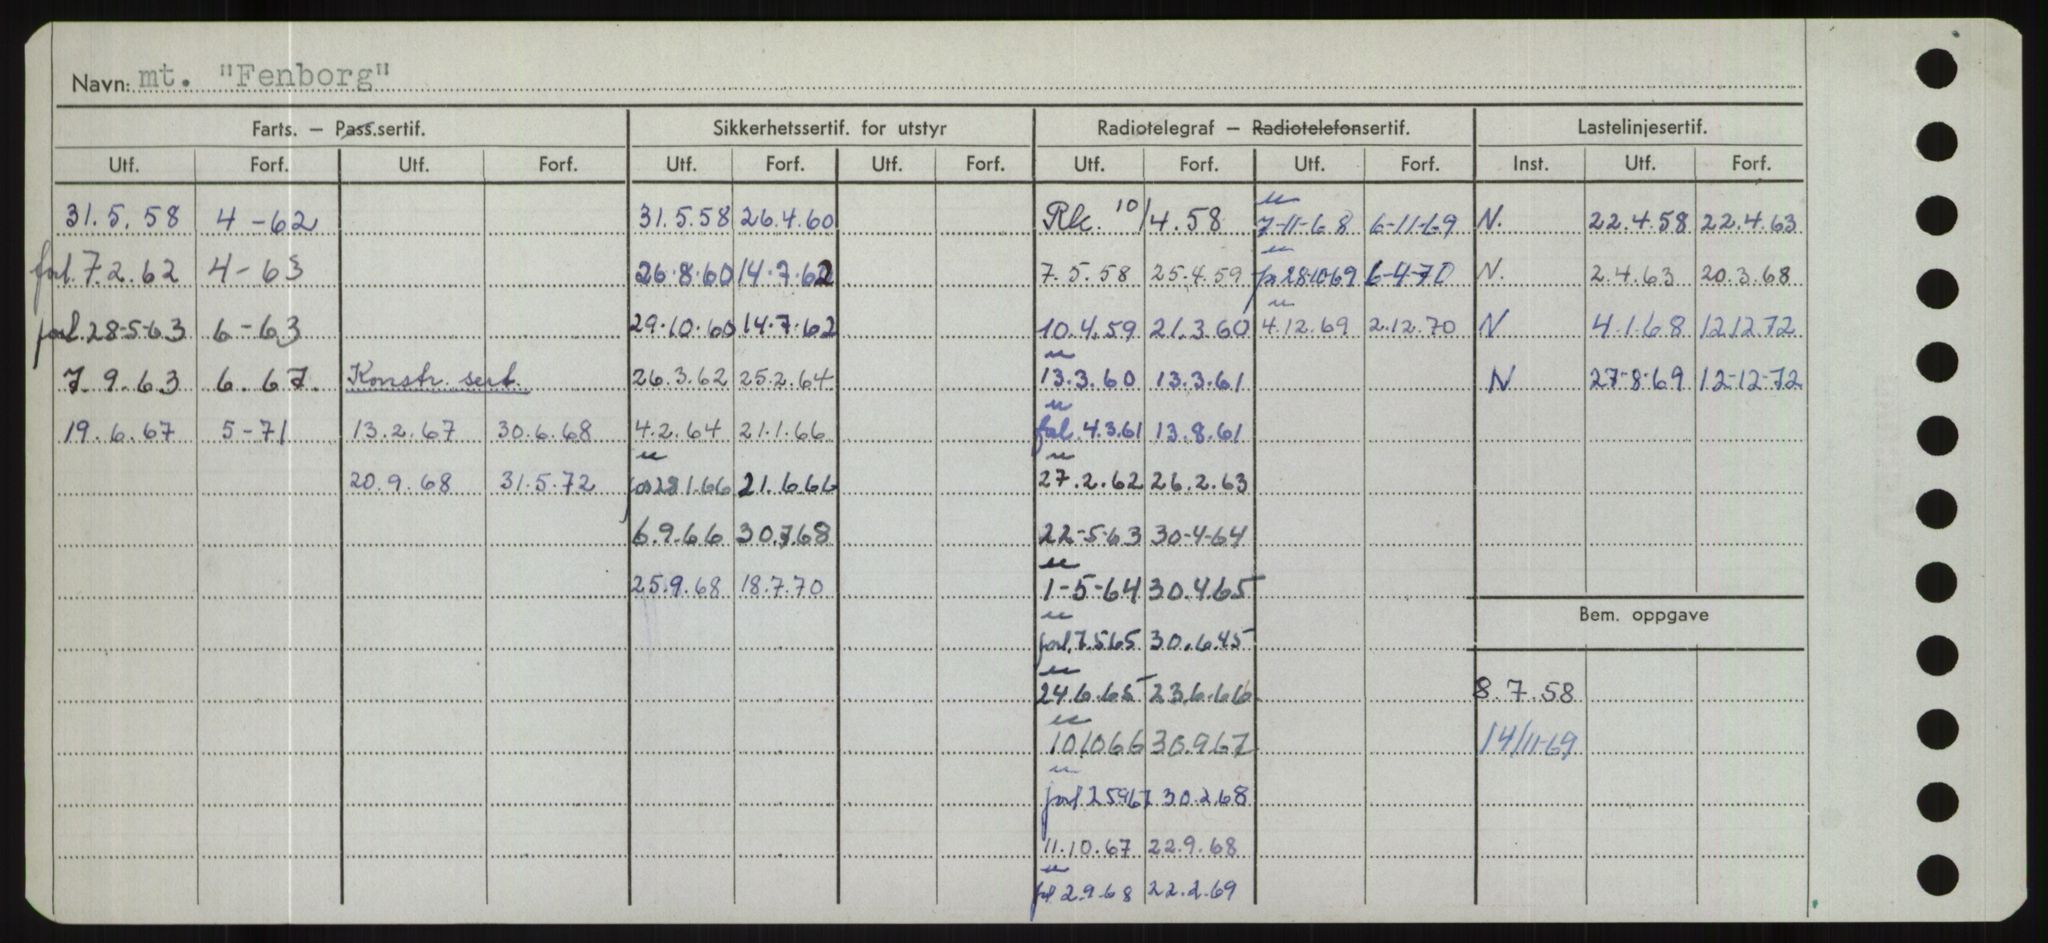 Navn: mt. "Fenborg"
Farts. – Pass.sertif. Sikkerhetssertif. for utstyr Radiotelegraf – Radiotelefonsertif. Lastelinjesertif.
Utf. Forf. Utf. Forf. Utf. Forf. Utf. Forf. Utf. Forf. Utf. Forf. Inst. Utf. Forf.
31.5.58 4-62 31.5.58 26.4.60 Rk. 10/4.58 7-11-68 6-11-69 N. 22.4.58 22.4.63
forl. 7.2.62 4-63 26.8.60 14.7.62 7.5.58 25.4.59 28-10-69 6-4-70 N. 2.4.63 20.3.68
forl. 28-5-63 6-63 29.10.60 14.7.62 10.4.59 21.3.60 4.12.69 2.12.70 N 4.1.68 12.12.72
7.9.63 6.67. Konstr. sert. 26.3.62 25.2.64 13.3.60 13.3.61 N 27-8-69 12-12-72
19.6.67 5-71 13.2.67 30.6.68 4.2.64 21.1.66 4.3.61 13.8.61
20.9.68 31.5.72 28.1.66 21.6.66 27.2.62 26.2.63
6.9.66 30.7.68 22-5-63 30-4-64
25.9.68 18.7.70 1-5-64 30.4.65
Bem. oppgave
forl. 7.5.65 30.6.45
24.6.65 23.6.66 8.7.58
10.10.66 30.9.67 14/11-69
forl 25.9.67 30.2.68
11.10.67 22.9.68
2.9.68 22.2.69